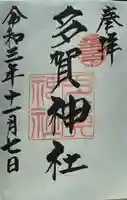 奉拝
多賀神社
令和三年十一月七日